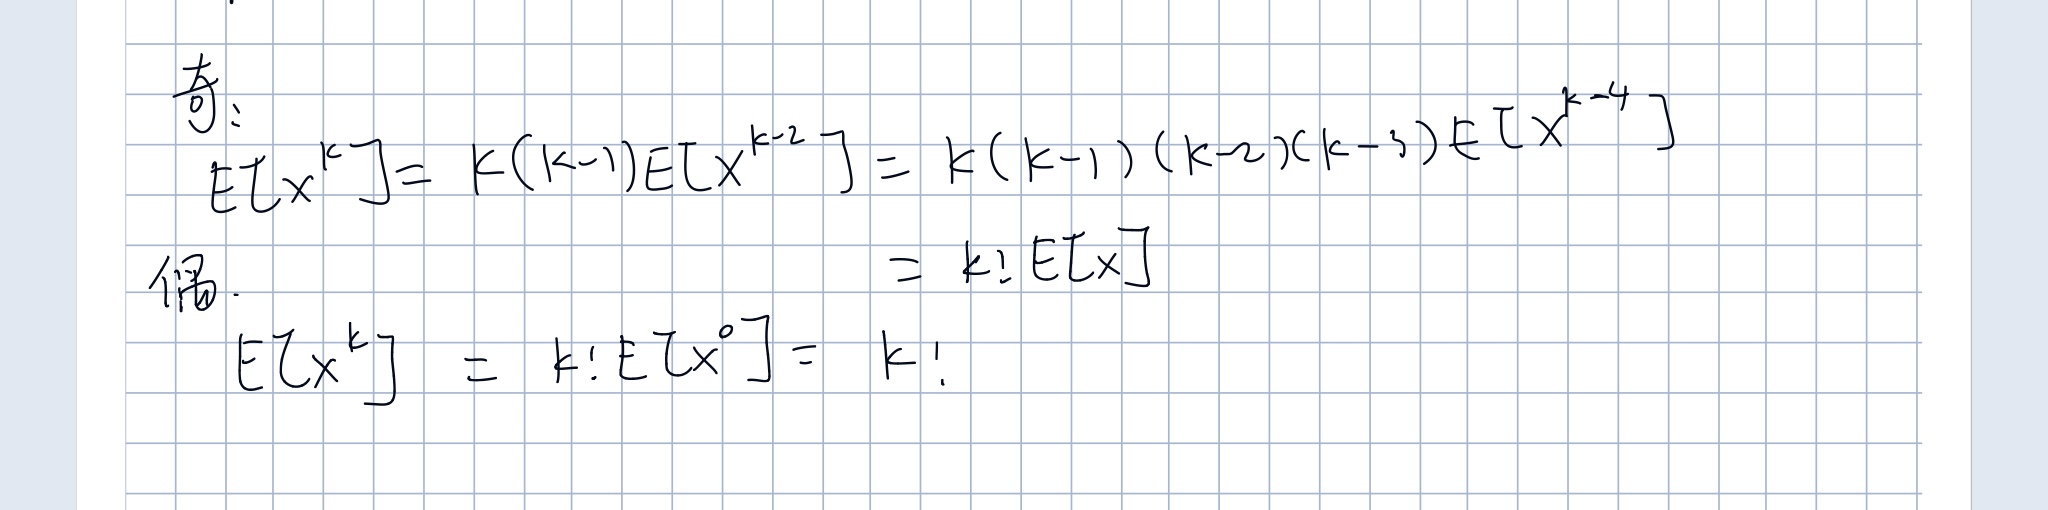 奇:
E[x^k] = k(k-1)E[x^{k-2}] = k(k-1)(k-2)(k-3)E[x^{k-4}]
= k! E[x]
偶.
E[x^k] = k! E[x^0] = k!